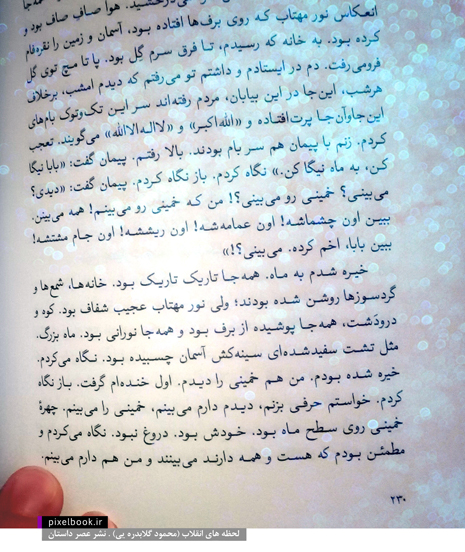 انعکاس نور مهتاب که روی برف‌ها افتاده بود، آسمان و زمین را نقره‌فام
کرده بود. به خانه که رسیدم، تا فرق سرم گِل بود. پا تا مچ توی گل
فرومی‌رفت. دم در ایستادم و داشتم تو می‌رفتم که دیدم امشب، برخلاف
هرشب، این‌جا در این بیابان، مردم رفته‌اند سر این تک‌وتوک بام‌های
این‌جاوآن‌جا پرت‌افتاده و «الله‌اکبر» و «لااله‌الاالله» می‌گویند. تعجب
کردم. زنم با پیمان هم سر بام بودند. بالا رفتم. پیمان گفت: «بابا نیگا
کن، به ماه نیگا کن.» نگاه کردم. باز نگاه کردم. پیمان گفت: «دیدی؟
می‌بینی؟ خمینی رو می‌بینی؟! من که خمینی رو می‌بینم! همه می‌بینن.
ببین اون چشماشه! اون عمامه‌شه! اون ریششه! اون جام مشتشه!
ببین بابا، اخم کرده. می‌بینی؟!»
خیره شدم به ماه. همه‌جا تاریک تاریک بود. خانه‌ها، شمع‌ها و
گردسوزها روشن شده بودند؛ ولی نور مهتاب عجیب شفاف بود. کوه و
درودشت، همه‌جا پوشیده از برف بود و همه‌جا نورانی بود. ماه بزرگ.
مثل تشت سفیدشده‌ای سینه‌کش آسمان چسبیده بود. نگاه می‌کردم.
خیره شده بودم. من هم خمینی را دیدم. اول خنده‌ام گرفت. باز نگاه
کردم. خواستم حرفی بزنم، دیدم دارم می‌بینم، خمینی را می‌بینم. چهرهٔ
خمینی روی سطح ماه بود. خودش بود. دروغ نبود. نگاه می‌کردم و
مطمئن بودم که هست و همه دارند می‌بینند و من هم دارم می‌بینم.
۲۳۰
pixelbook.ir
لحظه های انقلاب (محمود گلابدره یی) . نشر عصر داستان